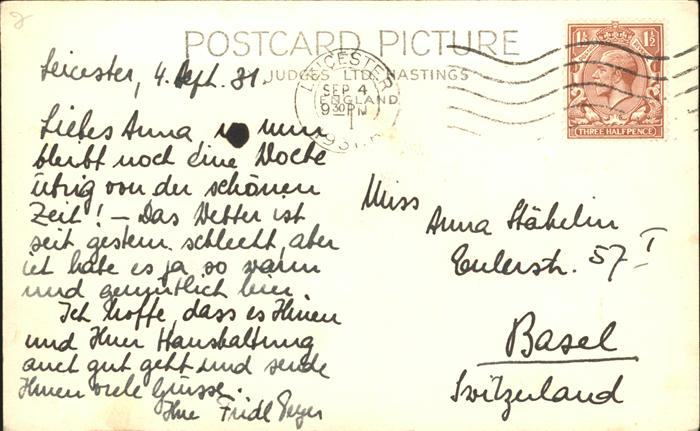 2
POSTCARD PICTURE
JUDGES LTD HASTINGS
LEICESTER
SEP 4
ENGLAND
9 30 PM
1931
1½ 1½
THREE HALFPENCE
Leicester, 4. Sept. 31.
Liebes Anna nun
bleibt noch eine Woche
übrig von der schönen
Zeit! – Das Wetter ist
seit gestern schlecht, aber
ich habe es ja so warm
und gemütlich hier.
Ich hoffe, dass es Ihnen
und Ihrer Haushaltung
auch gut geht und sende
Ihnen viele Grüsse.
Ihre Fridl
Miss
Anna Stähelin
Eulerstr. 57 I
Basel
Switzerland